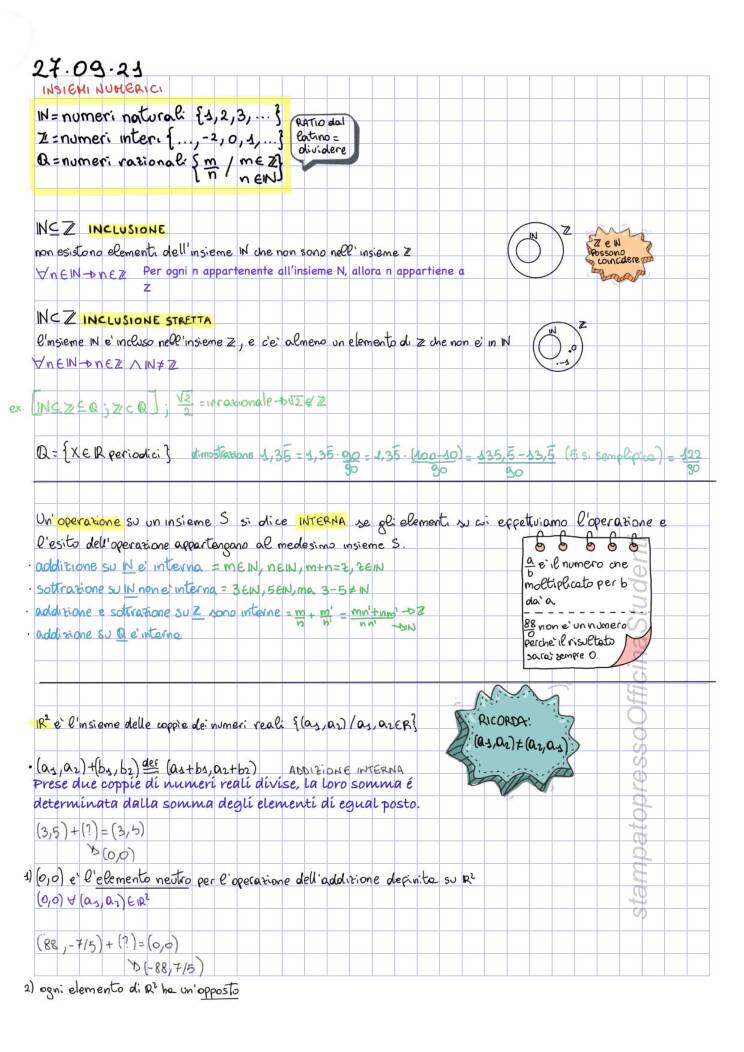 27.09.21
INSIEMI NUMERICI
ℕ=numeri naturali {1,2,3,...}
ℤ=numeri interi {...,-2,0,1,...}
ℚ=numeri razionali {m/n / m∈ℤ n∈ℕ}
RATIO dal
latino=
dividere
ℕ⊆ℤ INCLUSIONE
non esistono elementi dell'insieme ℕ che non sono nell'insieme ℤ
∀n∈ℕ→n∈ℤ Per ogni n appartenente all'insieme N, allora n appartiene a
Z
ℕ ℤ
ℤ e ℕ
Possono
coincidere
ℕ⊂ℤ INCLUSIONE STRETTA
l'insieme ℕ è incluso nell'insieme ℤ, e c'è almeno un elemento di ℤ che non è in ℕ
∀n∈ℕ→n∈ℤ ∧ℕ≠ℤ
ℕ ℤ
.0
.-1
ex. [ℕ⊆ℤ⊆ℚ; ℤ⊂ℚ]; √2/2 =irrazionale→√2∉ℤ
ℚ={x∈ℝ periodici} dimostrazione 1,35̅=1,35̅·90/90=1,35̅·(100-10)/90=135,5̅-13,5̅/90 (5̅ si semplifica)=122/90
Un'operazione su un insieme S si dice INTERNA se gli elementi su cui effettuiamo l'operazione e
l'esito dell'operazione appartengano al medesimo insieme S.
· addizione su ℕ è interna = m∈ℕ, n∈ℕ, m+n=z, z∈ℕ
· sottrazione su ℕ non è interna = 3∈ℕ, 5∈ℕ, ma 3-5∉ℕ
· addizione e sottrazione su ℤ sono interne = m/n + m'/n' = mn'+nm'/nn' →ℤ →ℕ
· addizione su ℚ è interna
a/b è il numero che
moltiplicato per b
dà a
88/0 non è un numero
perchè il risultato
sarai sempre 0
ℝ² è l'insieme delle coppie dei numeri reali {(a1,a2)/a1,a2∈ℝ}
RICORDA:
(a1,a2)≠(a2,a1)
·(a1,a2)+(b1,b2) def= (a1+b1,a2+b2) ADDIZIONE INTERNA
Prese due coppie di numeri reali divise, la loro somma é
determinata dalla somma degli elementi di egual posto.
(3,5)+(?)=(3,5)
↘(0,0)
1) (0,0) è l'elemento neutro per l'operazione dell'addizione definita su ℝ²
(0,0) ∀(a1,a2)∈ℝ²
(88,-7/5)+(?)=(0,0)
↘(-88,7/5)
2) ogni elemento di ℝ² ha un'opposto
stampatopressoOfficinaStudenti